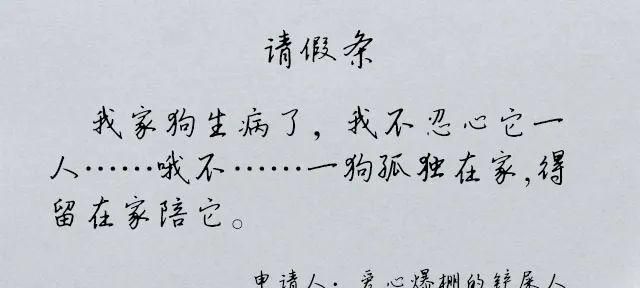 请假条
我家狗生病了，我不忍心它一
人……哦不……一狗孤独在家，得
留在家陪它。
申请人：爱心爆棚的铲屎人